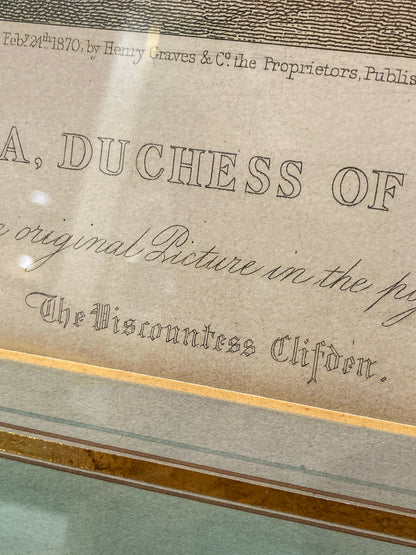 Feby. 24th 1870, by Henry Graves & Co. the Proprietors, Publis
A, DUCHESS OF
original Picture in the p
The Viscountess Clifden.